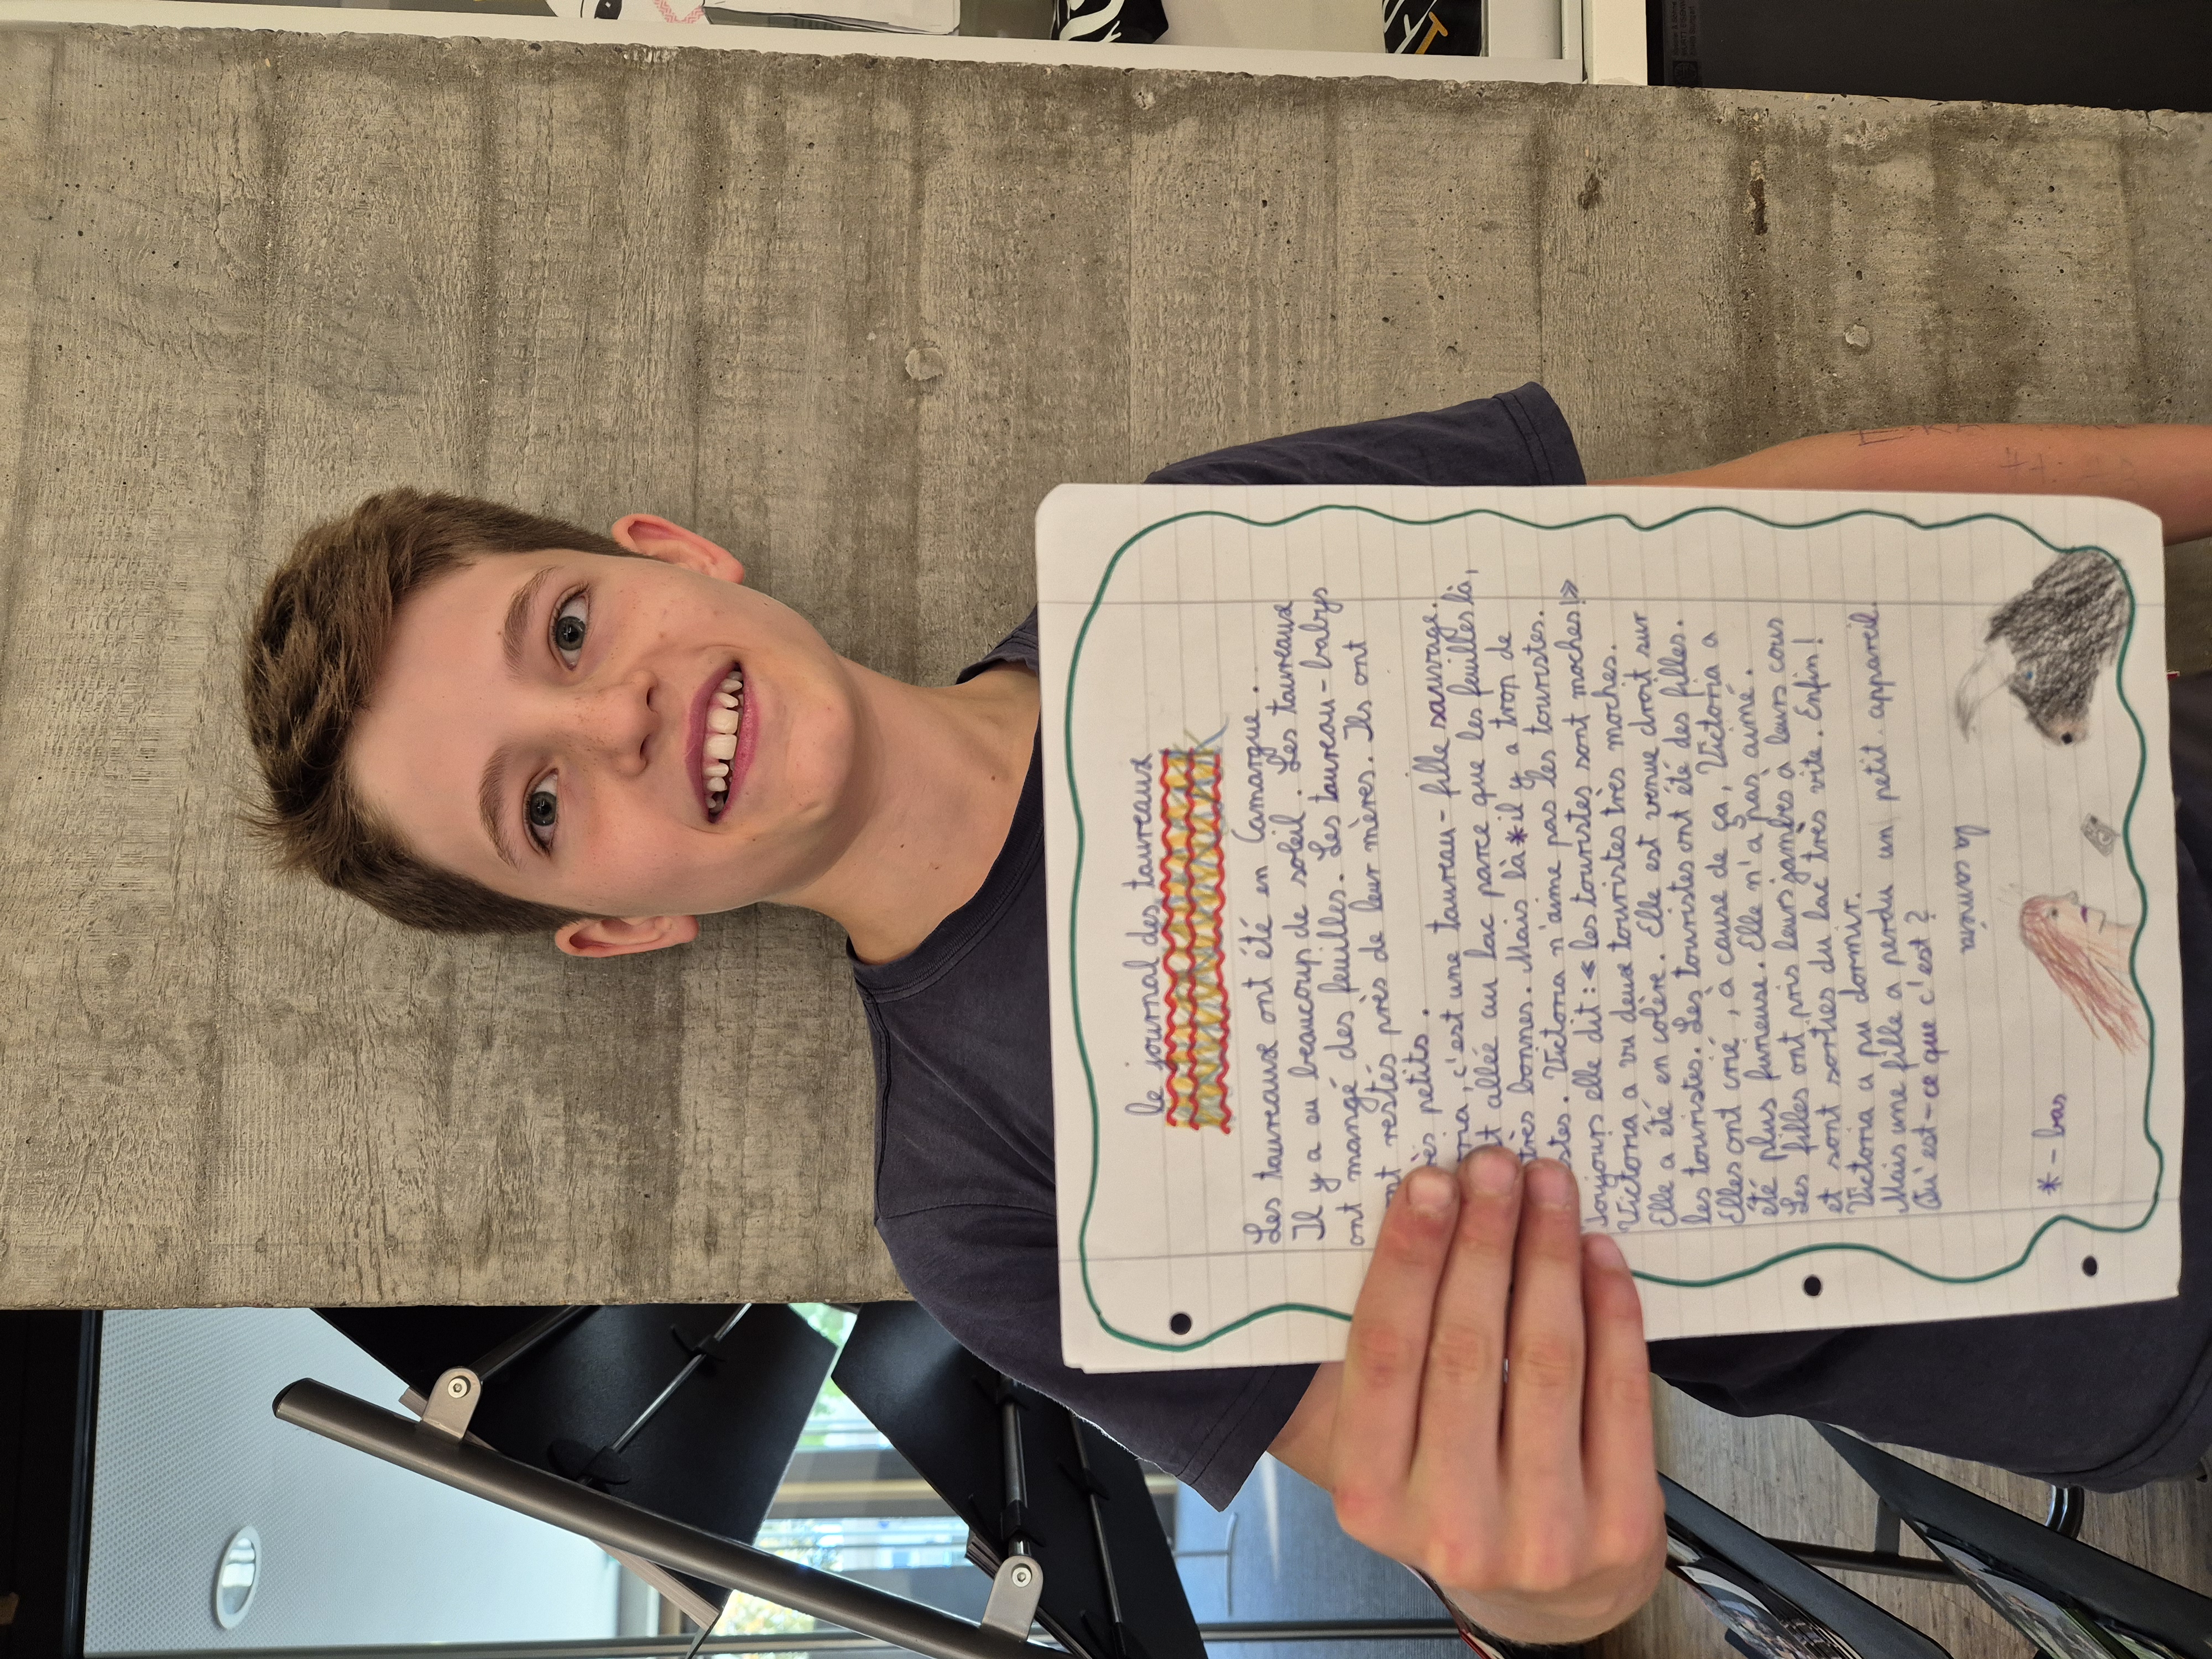 le journal des taureaux
Les taureaux ont été en Camargue.
Il y a eu beaucoup de soleil. Les taureaux
ont mangé des feuilles. Les taureau-babys
nt restés près de leur mères. Ils ont
ès petits.
ria, c'est une taureau-fille sauvage.
t allée au lac parce que les feuilles là,
très bonnes. Mais là * il y a trop de
stes. Victoria n'aime pas les touristes.
Toujours elle dit: « les touristes sont moches!»
Victoria a vu deux touristes très moches.
Elle a été en colère. Elle est venue droit sur
les touristes. Les touristes ont été des filles.
Elles ont crié, à cause de ça, Victoria a
été plus furieuse. Elle n'a pas aimé.
Les filles ont pris leurs jambes à leurs cous
et sont sorties du lac très vite. Enfin!
Victoria a pu dormir.
Mais une fille a perdu un petit appareil.
Qu'est-ce que c'est?
* - bas